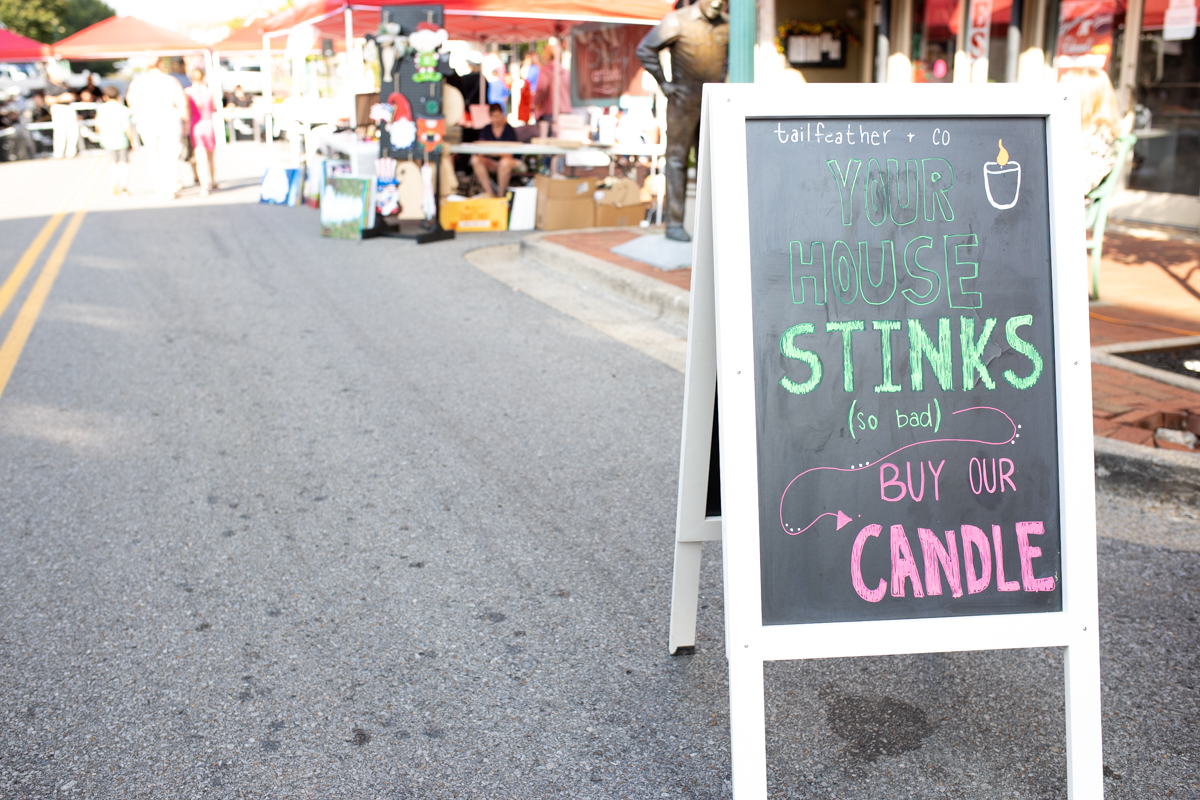 tailfeather + co
YOUR
HOUSE
STINKS
(so bad)
BUY OUR
CANDLE